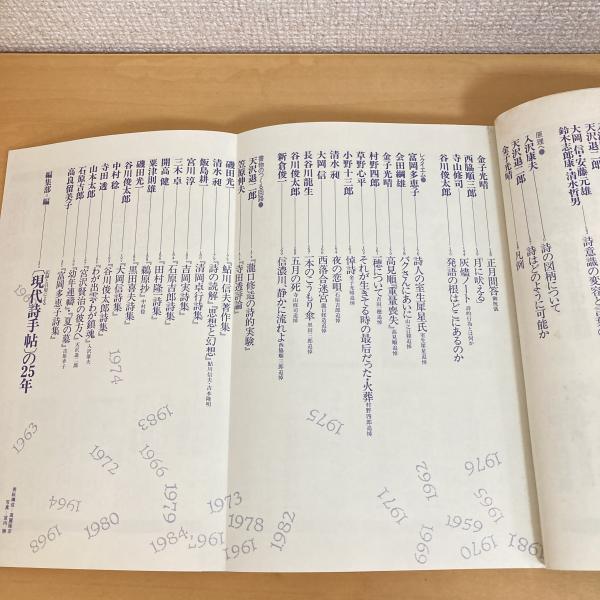 天沢退二郎
大岡信・安藤元雄
鈴木志郎康・清水哲男
詩意識の変容と
原理へ
入沢康夫
詩の図柄について
天沢退二郎
詩はどのように可能か
金子光晴
凡例
金子光晴
正月問答
西脇順三郎
月に吠える
寺山修司
灰墟ノート
谷川俊太郎
発語の根はどこにあるのか
レクイエム
富岡多恵子
詩人の室生犀星氏 室生犀星追悼
会田綱雄
バクさんにあいに
金子光晴
高見順『重量喪失』 高見順追悼
村野四郎
『穂』について
草野心平
それが生きてる時の最后だった・火葬 村野四郎追悼
小野十三郎
悼詩
清水昶
夜の恋唄
大岡信
西落合迷宮 瀧口修造追悼
長谷川龍生
一本のこうもり傘 黒田三郎追悼
谷川俊太郎
五月の死 寺山修司追悼
新倉俊一
信濃川、静かに流れよ 西脇順三郎追悼
書物のつくる回路
天沢退二郎
『瀧口修造の詩的実験』
笠原伸夫
『寺田透評論』
磯田光一
『鮎川信夫著作集』
清水昶
『詩の読解』『思想と幻想』 鮎川信夫・吉本隆明
飯島耕一
『清岡卓行詩集』
宮川淳
『吉岡実詩集』
三木卓
『石原吉郎詩集』
開高健
『田村隆一詩集』
粟津則雄
『鶴原抄』
磯田光一
『黒田喜夫詩集』
谷川俊太郎
『大岡信詩集』
中村稔
『谷川俊太郎詩集』
寺田透
『わが出雲・わが鎮魂』 入沢康夫
山本太郎
『宮沢賢治の彼方へ』 天沢退二郎
石原吉郎
『幼年連禱』、『夏の墓』
高良留美子
『富岡多恵子詩集』
編集部・編
〔現代詩手帖〕の25年
1963
1964
1968
1972
1974
1980
1983
1966
1979
1984
1967
1973
1978
1961
1982
1975
1971
1962
1969
1976
1965
1959
1970
1981